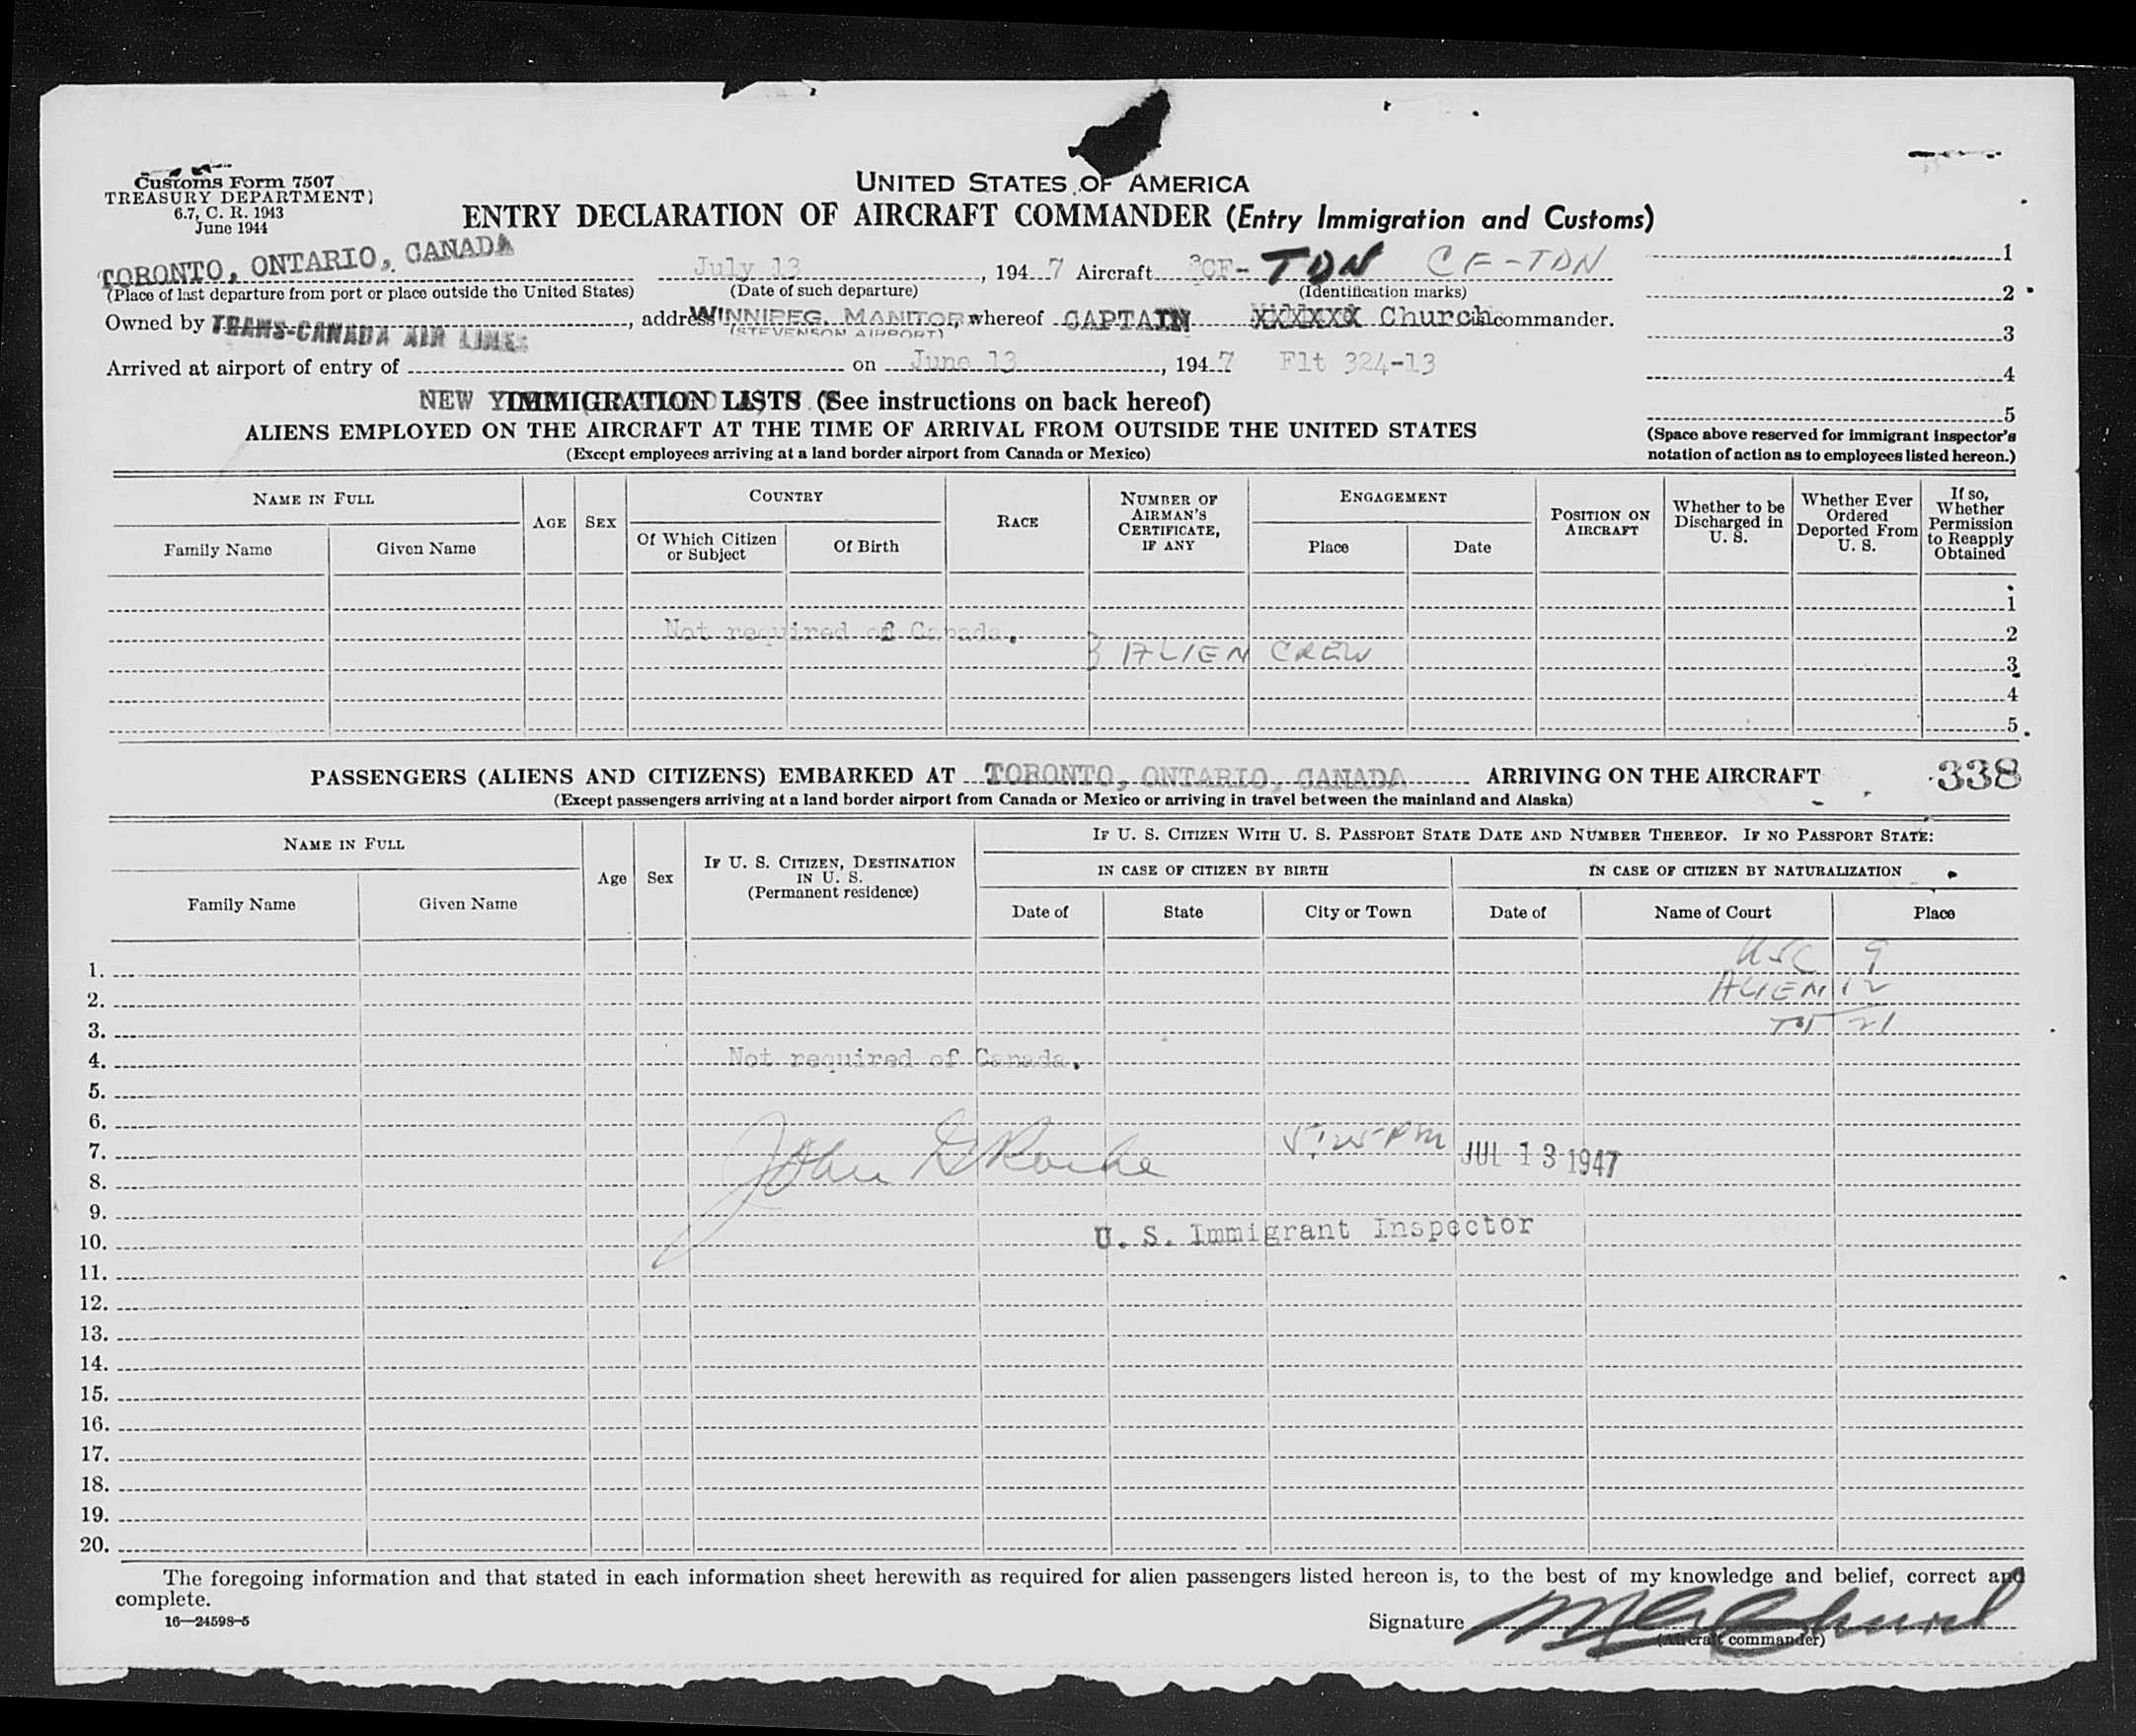 Customs Form 7507
TREASURY DEPARTMENT
6.7, C. R. 1943
June 1944
UNITED STATES OF AMERICA
ENTRY DECLARATION OF AIRCRAFT COMMANDER (Entry Immigration and Customs)
TORONTO, ONTARIO, CANADA July 13, 1947 Aircraft CF-TDN CF-TDN
(Place of last departure from port or place outside the United States) (Date of such departure) (Identification marks)
Owned by TRANS-CANADA AIR LINES, address WINNIPEG, MANITOBA, whereof CAPTAIN XXXXXX Church is commander.
(STEVENSON AIRPORT)
Arrived at airport of entry of on June 13, 1947 Flt 324-13
NEW
IMMIGRATION LISTS (See instructions on back hereof)
ALIENS EMPLOYED ON THE AIRCRAFT AT THE TIME OF ARRIVAL FROM OUTSIDE THE UNITED STATES
(Except employees arriving at a land border airport from Canada or Mexico)
1
2
3
4
5
(Space above reserved for immigrant inspector's
notation of action as to employees listed hereon.)
NAME IN FULL
Family Name Given Name
AGE SEX
COUNTRY
Of Which Citizen or Subject
Of Birth
RACE
NUMBER OF AIRMAN'S CERTIFICATE, IF ANY
ENGAGEMENT
Place Date
POSITION ON AIRCRAFT
Whether to be Discharged in U. S.
Whether Ever Ordered Deported From U. S.
If so, Whether Permission to Reapply Obtained
1
Not required of Canada. 2
3 ALIEN CREW 3
4
5
PASSENGERS (ALIENS AND CITIZENS) EMBARKED AT TORONTO, ONTARIO, CANADA ARRIVING ON THE AIRCRAFT 338
(Except passengers arriving at a land border airport from Canada or Mexico or arriving in travel between the mainland and Alaska)
NAME IN FULL
Family Name Given Name
Age Sex
IF U. S. CITIZEN, DESTINATION IN U. S.
(Permanent residence)
IF U. S. CITIZEN WITH U. S. PASSPORT STATE DATE AND NUMBER THEREOF. IF NO PASSPORT STATE:
IN CASE OF CITIZEN BY BIRTH IN CASE OF CITIZEN BY NATURALIZATION
Date of State City or Town Date of Name of Court Place
1. USC 9
2. ALIEN 12
3. TOT 21
4. Not required of Canada.
5.
6.
7. John JUL 13 1947
8.
9.
10. U. S. Immigrant Inspector
11.
12.
13.
14.
15.
16.
17.
18.
19.
20.
The foregoing information and that stated in each information sheet herewith as required for alien passengers listed hereon is, to the best of my knowledge and belief, correct and
complete.
16—24598-5
Signature Church
(Aircraft commander)